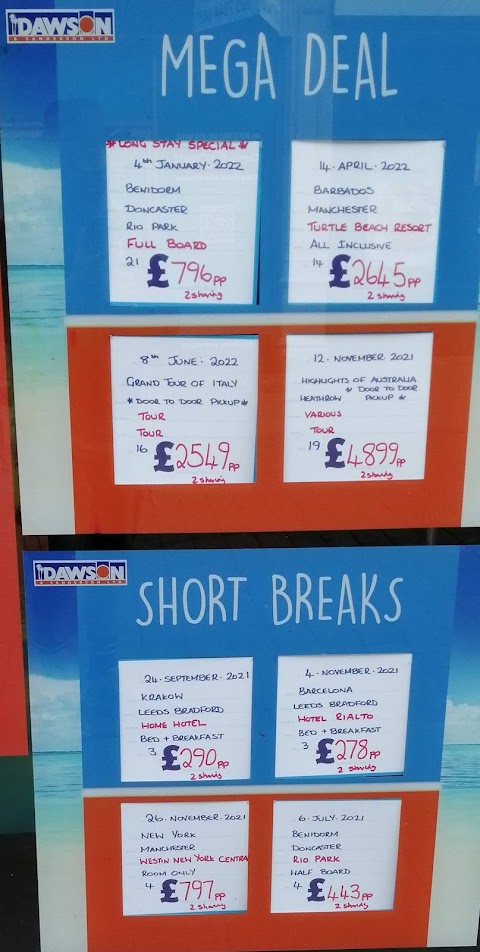 DAWSON
& SANDERSON LTD
MEGA DEAL
*LONG STAY SPECIAL*
4th JANUARY·2022
BENIDORM
DONCASTER
RIO PARK
FULL BOARD
21 £796pp
2 sharing
14·APRIL·2022
BARBADOS
MANCHESTER
TURTLE BEACH RESORT
ALL INCLUSIVE
14 £2645pp
2 sharing
8th JUNE·2022
GRAND TOUR OF ITALY
*DOOR TO DOOR PICKUP*
TOUR
TOUR
16 £2549pp
2 sharing
12·NOVEMBER 2021
HIGHLIGHTS OF AUSTRALIA
* DOOR TO DOOR
HEATHROW PICKUP *
VARIOUS
TOUR
19 £4899pp
2 sharing
DAWSON
& SANDERSON LTD
SHORT BREAKS
24·SEPTEMBER·2021
KRAKOW
LEEDS BRADFORD
HOME HOTEL
BED + BREAKFAST
3 £290pp
2 sharing
4·NOVEMBER·2021
BARCELONA
LEEDS BRADFORD
HOTEL RIALTO
BED + BREAKFAST
3 £278pp
2 sharing
26·NOVEMBER·2021
NEW YORK
MANCHESTER
WESTIN NEW YORK CENTRA
ROOM ONLY
4 £797pp
2 sharing
6·JULY·2021
BENIDORM
DONCASTER
RIO PARK
HALF BOARD
4 £443pp
2 sharing